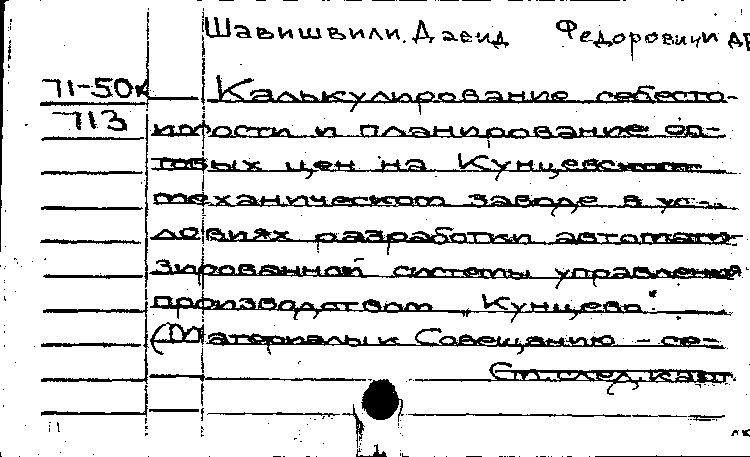 Шавишвили, Давид Федорович и др
71-50к Калькулирование себесто-
713 имости и планирование оп-
товых цен на Кунцевском
механическом заводе в ус-
ловиях разработки автомати-
зированной системы управления
производством „Кунцево".
(Материалы к Совещанию - се-
См. след. карт